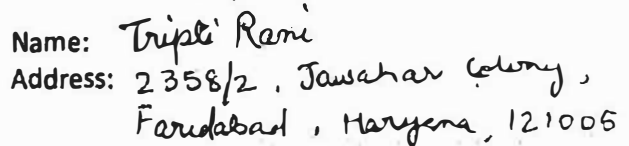 Name: Tripti Rani
Address: 2358/2, Jawahar Colony,
Faridabad, Haryana, 121005